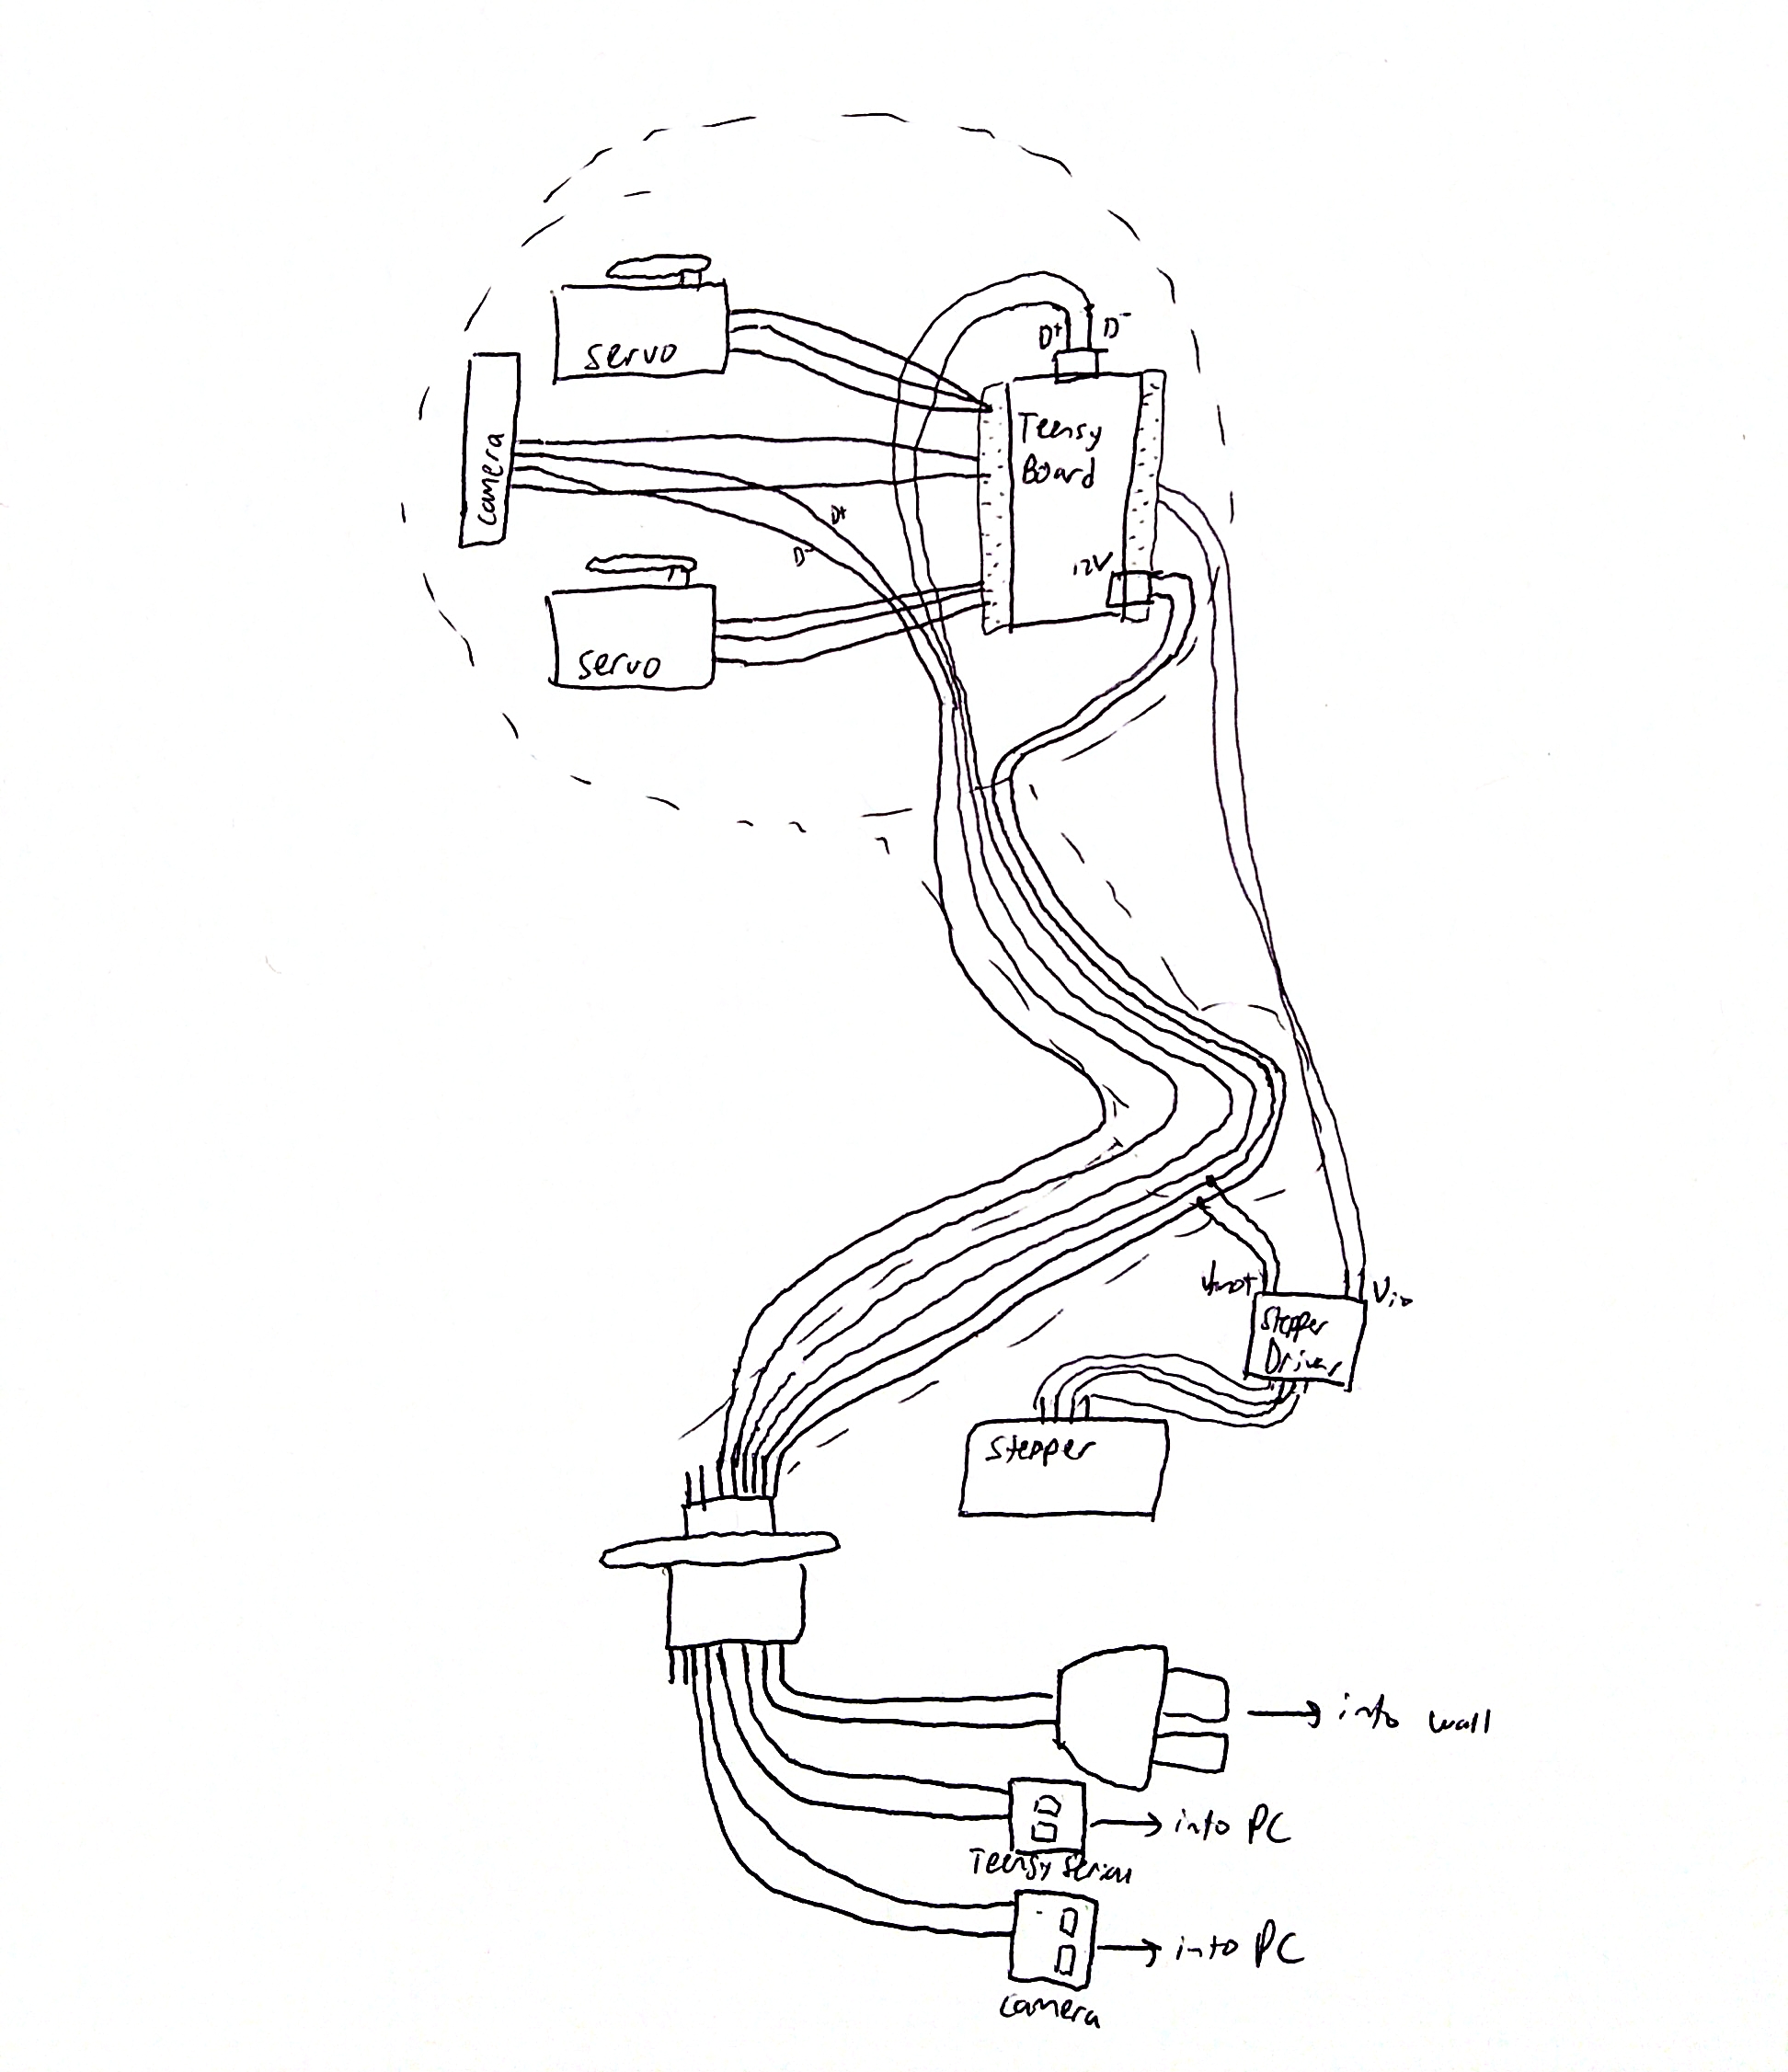 servo
D+
D-
Teensy
Board
camera
D+
D-
12V
servo
Vmot
Vio
Stepper
Driver
Stepper
into wall
into PC
Teensy Serial
into PC
camera